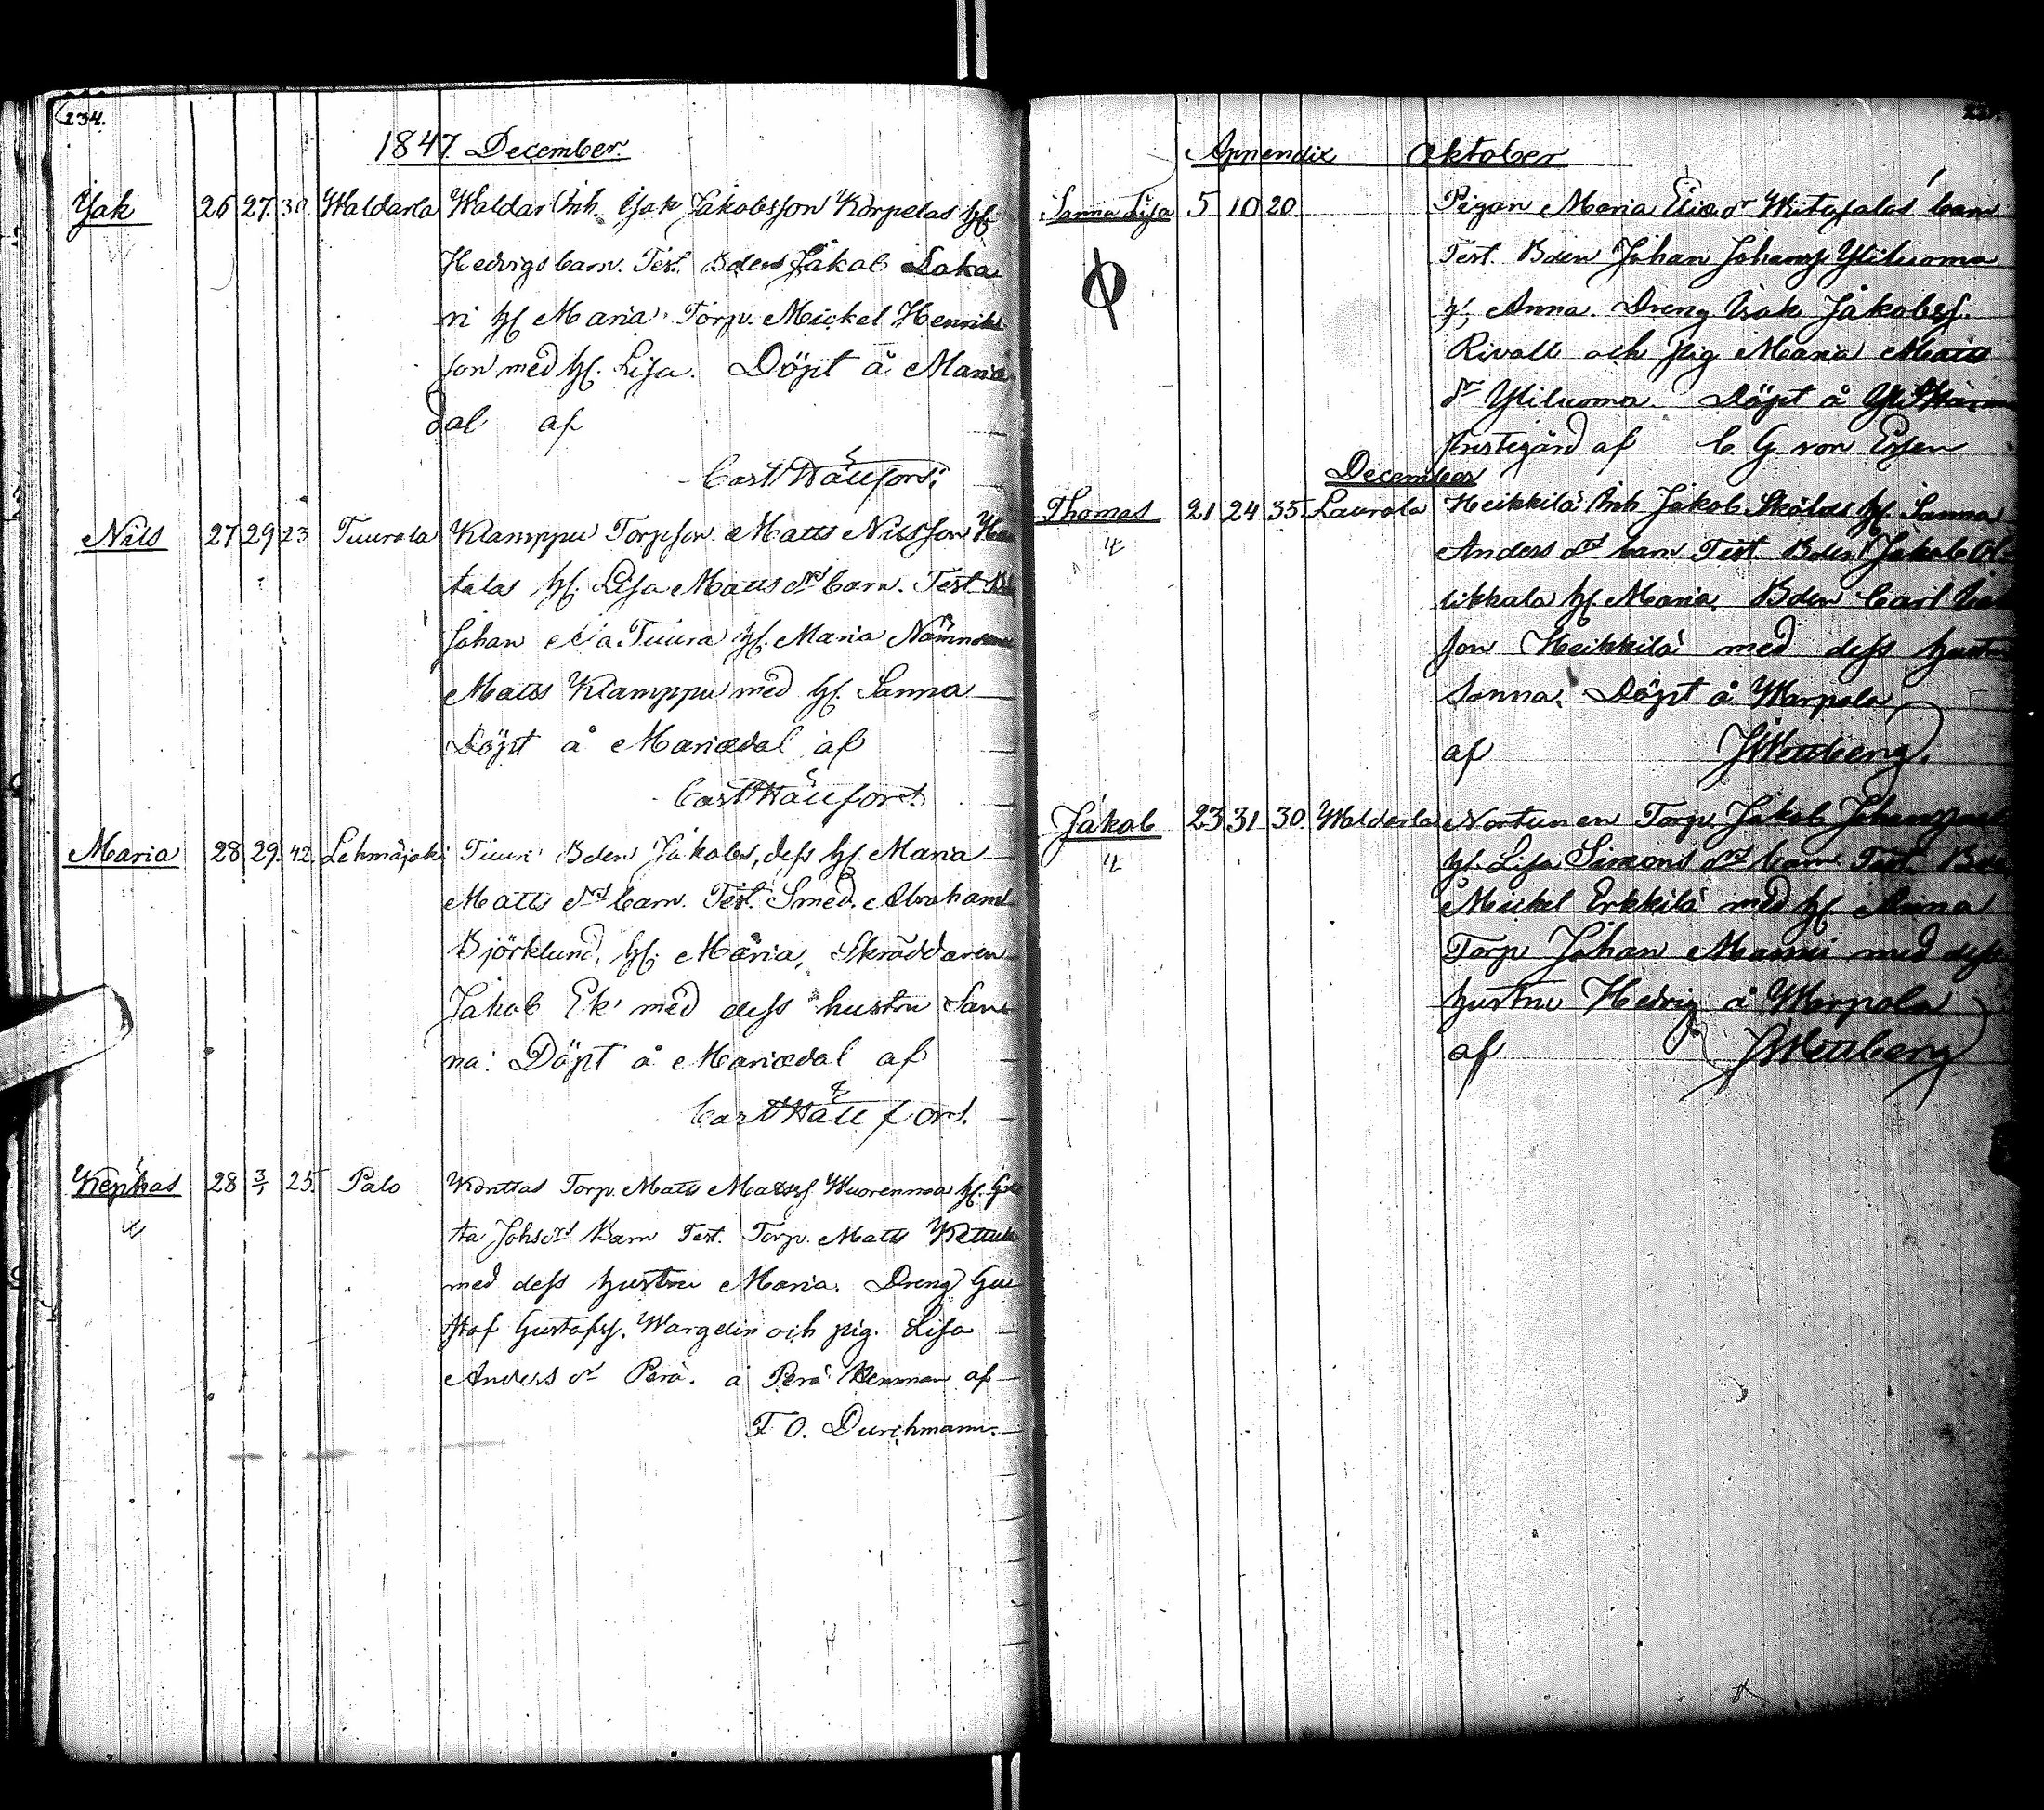 234.
1847. December.
Isak 26 27. 30. Waldarla Waldar Inh. Isak Jakobsson Korpelas hꝭ
Hedvigs barn. Test. Bden Jakob Laka
ri hꝭ Maria. Torp. Mickel Henriks
son med hꝭ. Lisa. Döpt å Marie
dal af
Carl Hällfors.
Nils 27 29 23 Tuurala Klamppu Torpson Matts Nilsson
talas hꝭ. Lisa Matts drs barn. Test
Johan Ala Tuura hꝭ. Maria Nämndem
Matts Klamppu med hꝭ. Sanna
Döpt å Mariedal af
Carl Hällfors.
Maria 28 29. 42. Lehmäjoki Tuuri Bden Jakobs, dess hꝭ. Maria
Matts drs barn. Test. Smed. Abraham
Björklund, hꝭ. Maria, Skräddaren
Jakob Ek med dess hustru San
na. Döpt å Mariedal af
Carl Hällfors.
Kephas 28 3/1 25. Palo Konttas Torp. Matts Mattss. Wuorenmaa hꝭ. Gre
ta Johsdrs Barn Test. Torp. Matts
med dess hustru Maria. Dreng Gus
staf Gustafss. Wargelin och pig. Lisa
Anders dr Perä. å Perä Hemman af
F. O. Durchmann.
Appendix Oktober
Sanna Lisa 5 10 20 Pigan Maria Elias dr Witasalos barn
Test. Bden Johan Johanss. Yliluoma
hꝭ Anna. Dreng Isak Jakobss.
Rivall och pig Maria Matts
dr Yliluoma. Döpt å
prestegård af C. G. von Essen
December
Thomas 21 24 35 Laurola Heikkilä Inh Jakob Skölds hꝭ. Sanna
Anders drs barn Test. Bden Jakob Ol
likkala hꝭ. Maria. Bden Carl Isak
son Heikkilä med dess hustru
Sanna. Döpt å Warpola
af J Wetterberg.
Jakob 23 31 30. Waldarla Nortunen Torp. Jakob
hꝭ. Lisa Simons drs barn Test. Bden
Mickel Erkkilä med hꝭ Anna
Torp Johan Manni med dess
hustru Hedvig å Warpola
af J Wetterberg